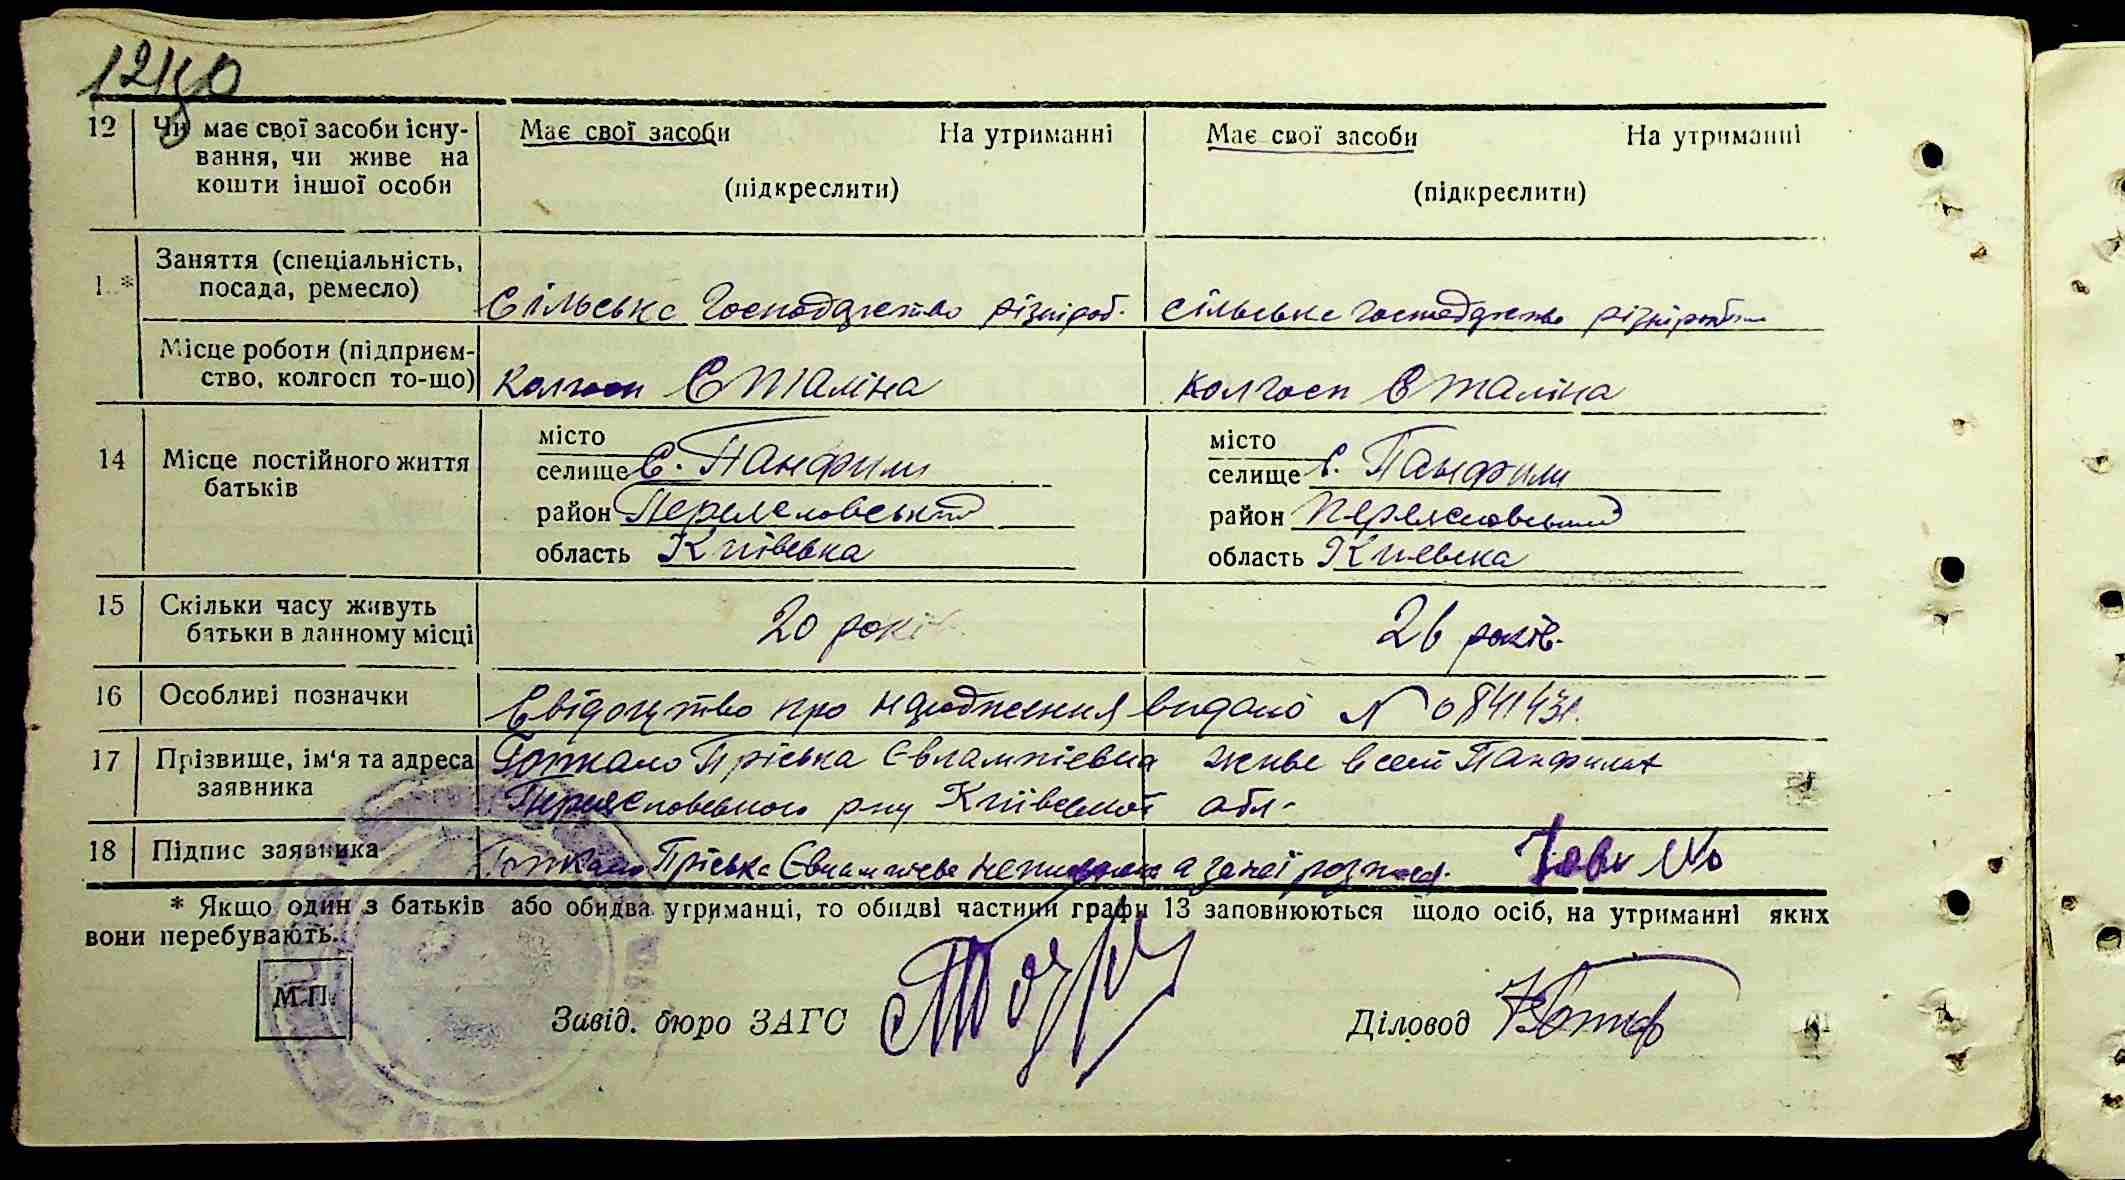 12
Чи має свої засоби існу-
вання, чи живе на
кошти іншої особи
Має свої засоби На утриманні
(підкреслити)
Має свої засоби На утриманні
(підкреслити)
1 *
Заняття (спеціальність,
посада, ремесло)
Сільське господарство різнороб.
сільське господарство
Місце роботи (підприєм-
ство, колгосп то-що)
Колгосп Сталіна
колгосп Сталіна
14
Місце постійного життя
батьків
місто
селище с. Панфили
район Переяславський
область Київська
місто
селище с. Панфили
район Переяславський
область Киевска
15
Скільки часу живуть
батьки в данному місці
20 років
26 років.
16
Особливі позначки
Свідоцтво про народження видано N 0841431.
17
Прізвище, ім'я та адреса
заявника
Пріська Євлампієвна живе в селі Панфилах
Переяславського р-ну Київської обл.
18
Підпис заявника
Пріська
* Якщо один з батьків або обидва утриманці, то обидві частини графи 13 заповнюються щодо осіб, на утриманні яких
вони перебувають.
М.П.
Завід. бюро ЗАГС
Діловод